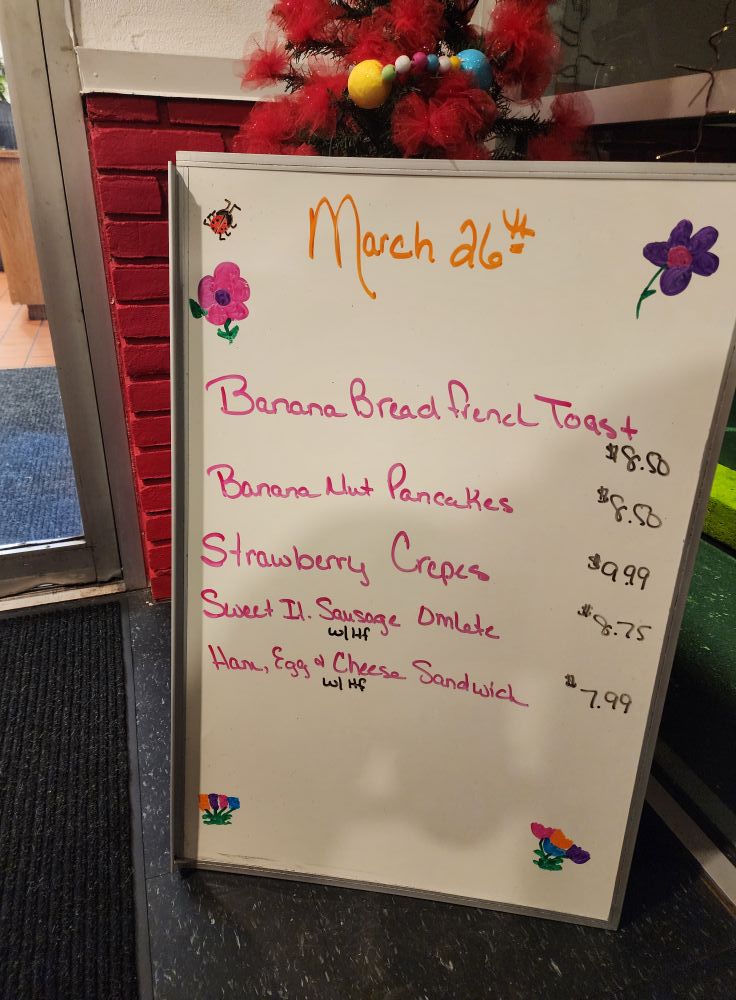 March 26th
Banana Bread french Toast
$8.50
Banana Nut Pancakes $8.50
Strawberry Crepes $9.99
Sweet It. Sausage Omlete $8.75
w/ Hf
Ham, Egg & Cheese Sandwich $7.99
w/ Hf